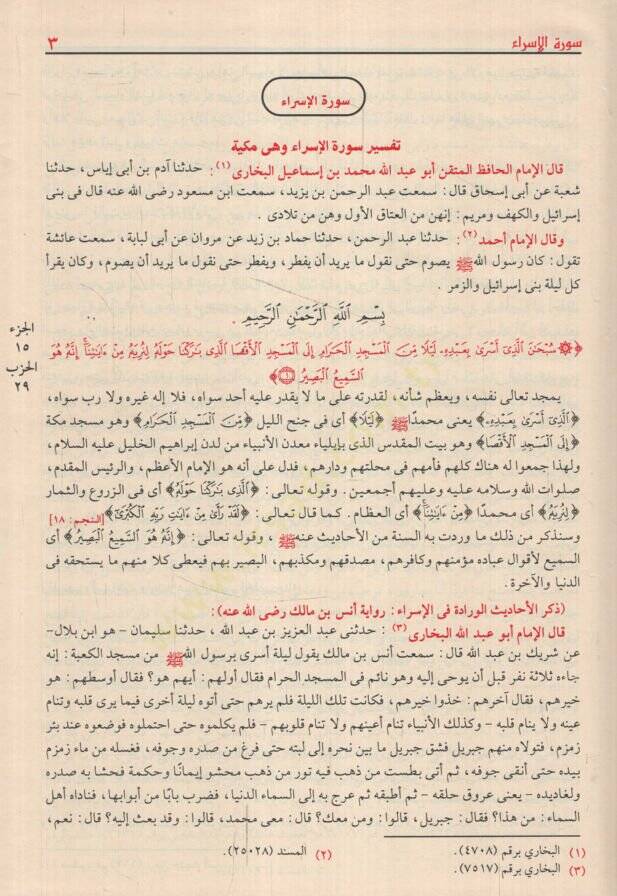 سورة الإسراء ٣
سورة الإسراء
تفسير سورة الإسراء وهى مكية
قال الإمام الحافظ المتقن أبو عبد الله محمد بن إسماعيل البخارى (١): حدثنا آدم بن أبى إياس، حدثنا
شعبة عن أبى إسحاق قال: سمعت عبد الرحمن بن يزيد، سمعت ابن مسعود رضى الله عنه قال فى بنى
إسرائيل والكهف ومريم: إنهن من العتاق الأول وهن من تلادى .
وقال الإمام أحمد(٢): حدثنا عبد الرحمن، حدثنا حماد بن زيد عن مروان عن أبى لبابة، سمعت عائشة
تقول: كان رسول الله ﷺ يصوم حتى نقول ما يريد أن يفطر، ويفطر حتى نقول ما يريد أن يصوم، وكان يقرأ
كل ليلة بنى إسرائيل والزمر .
بِسْمِ ٱللَّهِ ٱلرَّحْمَٰنِ ٱلرَّحِيمِ
الجزء
١٥
الحزب
٢٩
﴿۞ سُبْحَٰنَ ٱلَّذِىٓ أَسْرَىٰ بِعَبْدِهِۦ لَيْلًا مِّنَ ٱلْمَسْجِدِ ٱلْحَرَامِ إِلَى ٱلْمَسْجِدِ ٱلْأَقْصَا ٱلَّذِى بَٰرَكْنَا حَوْلَهُۥ لِنُرِيَهُۥ مِنْ ءَايَٰتِنَآ إِنَّهُۥ هُوَ
ٱلسَّمِيعُ ٱلْبَصِيرُ ١﴾
يمجد تعالى نفسه، ويعظم شأنه، لقدرته على ما لا يقدر عليه أحد سواه، فلا إله غيره ولا رب سواه،
﴿ٱلَّذِىٓ أَسْرَىٰ بِعَبْدِهِۦ﴾ يعنى محمدًا ﷺ ﴿لَيْلًا﴾ أى فى جنح الليل ﴿مِّنَ ٱلْمَسْجِدِ ٱلْحَرَامِ﴾ وهو مسجد مكة
﴿إِلَى ٱلْمَسْجِدِ ٱلْأَقْصَا﴾ وهو بيت المقدس الذى بإيلياء معدن الأنبياء من لدن إبراهيم الخليل عليه السلام،
ولهذا جمعوا له هناك كلهم فأمهم فى محلتهم ودارهم، فدل على أنه هو الإمام الأعظم، والرئيس المقدم،
صلوات الله وسلامه عليه وعليهم أجمعين. وقوله تعالى: ﴿ٱلَّذِى بَٰرَكْنَا حَوْلَهُۥ﴾ أى فى الزروع والثمار
﴿لِنُرِيَهُۥ﴾ أى محمدًا ﴿مِنْ ءَايَٰتِنَآ﴾ أى العظام. كما قال تعالى: ﴿لَقَدْ رَأَىٰ مِنْ ءَايَٰتِ رَبِّهِ ٱلْكُبْرَىٰٓ﴾ [النجم: ١٨]
وسنذكر من ذلك ما وردت به السنة من الأحاديث عنه ﷺ، وقوله تعالى: ﴿إِنَّهُۥ هُوَ ٱلسَّمِيعُ ٱلْبَصِيرُ﴾ أى
السميع لأقوال عباده مؤمنهم وكافرهم، مصدقهم ومكذبهم، البصير بهم فيعطى كلا منهم ما يستحقه فى
الدنيا والآخرة.
(ذكر الأحاديث الواردة فى الإسراء: رواية أنس بن مالك رضى الله عنه):
قال الإمام أبو عبد الله البخارى(٣) : حدثنى عبد العزيز بن عبد الله ، حدثنا سليمان - هو ابن بلال-
عن شريك بن عبد الله قال: سمعت أنس بن مالك يقول ليلة أسرى برسول الله ﷺ من مسجد الكعبة: إنه
جاءه ثلاثة نفر قبل أن يوحى إليه وهو نائم فى المسجد الحرام فقال أولهم: أيهم هو؟ فقال أوسطهم: هو
خيرهم، فقال آخرهم: خذوا خيرهم، فكانت تلك الليلة فلم يرهم حتى أتوه ليلة أخرى فيما يرى قلبه وتنام
عينه ولا ينام قلبه - وكذلك الأنبياء تنام أعينهم ولا تنام قلوبهم - فلم يكلموه حتى احتملوه فوضعوه عند بئر
زمزم، فتولاه منهم جبريل فشق جبريل ما بين نحره إلى لبته حتى فرغ من صدره وجوفه، فغسله من ماء زمزم
بيده حتى أنقى جوفه، ثم أتى بطست من ذهب فيه تور من ذهب محشو إيمانًا وحكمة فحشا به صدره
ولغاديده - يعنى عروق حلقه - ثم أطبقه ثم عرج به إلى السماء الدنيا، فضرب بابًا من أبوابها، فناداه أهل
السماء: من هذا؟ فقال: جبريل، قالوا: ومن معك؟ قال: معى محمد، قالوا: وقد بعث إليه؟ قال: نعم،
(١) البخارى برقم (٤٧٠٨). (٢) المسند (٢٥٠٢٨).
(٣) البخارى برقم (٧٥١٧).